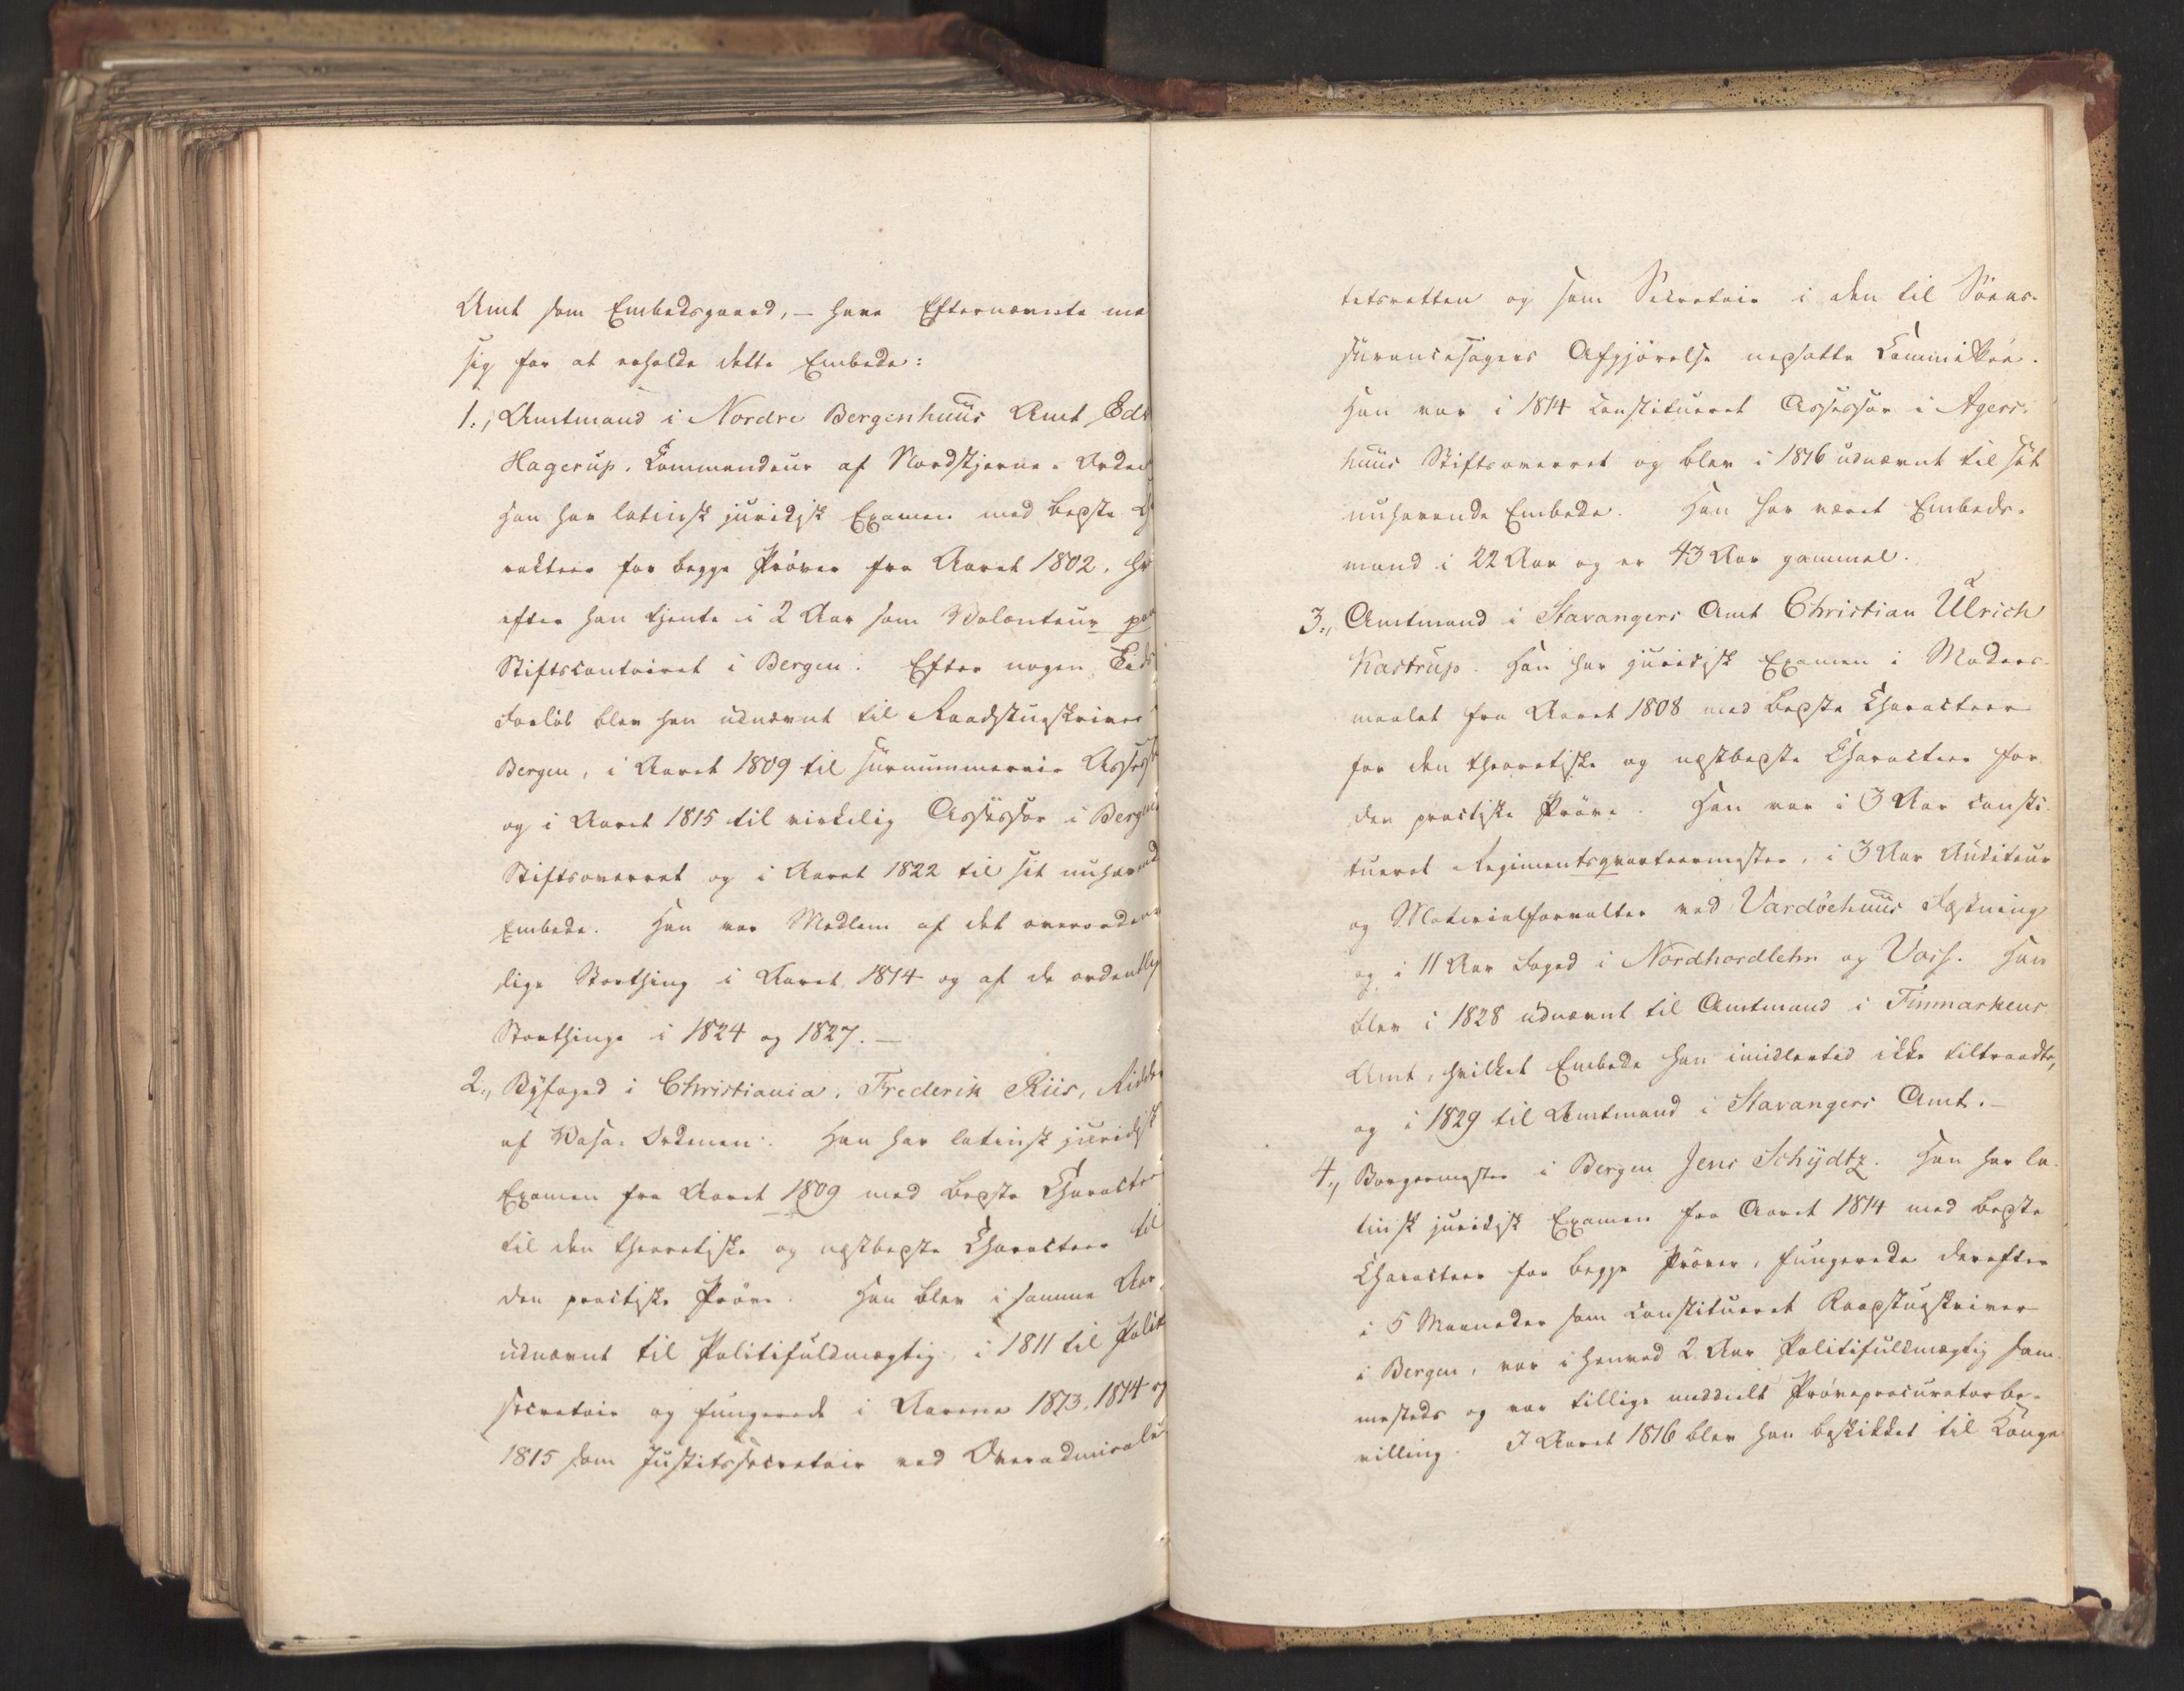 Amt som Embedsgaard, – have Efternævnte me
sig for at erholde dette Embede:
1., Amtmand i Nordre Bergenhuus Amt Edv
Hagerup, Commandeur af Nordstjerne-Orden
Han har latinsk juridisk Examen med bedste Ch
rakteer for begge Prøver fra Aaret 1802, hv
efter han tjente i 2 Aar som Volonteur paa
Stiftscontoiret i Bergen. Efter nogen Tids
Forløb blev han udnævnt til Raadstueskriver
Bergen, i Aaret 1809 til surnummerair Assess
og i Aaret 1815 til virkelig Assessor i Bergens
Stiftsoverret og i Aaret 1822 til sit nuhavend
Embede. Han var Medlem af det overordent
lige Storthing i Aaret 1814 og af de ordentlige
Storthinge i 1824 og 1827. –
2., Byfoged i Christiania, Frederik Riis, Ridder
af Wasa-Ordenen. Han har latinsk juridisk
Examen fra Aaret 1809 med bedste Characteer
til den theoretiske og næstbedste Characteer til
den practiske Prøve. Han blev i samme Aar
udnævnt til Politifuldmægtig, i 1811 til Polit
secretair og fungerede i Aarene 1813, 1814 og
1815 som Justitssecretair ved Overadmirali
tetsretten og som Secretair i den til Søeas-
surancesagers Afgjørelse nedsatte Committee.
Han var i 1814 constitueret Assessor i Agers-
huus Stiftsoverret og blev i 1816 udnævnt til sit
nuhavende Embede. Han har været Embeds-
mand i 22 Aar og er 43 Aar gammel.
3., Amtmand i Stavangers Amt Christian Ulrich
Kastrup. Han har juridisk Examen i Moders-
maalet fra Aaret 1808 med bedste Characteer
for den theoretiske og næstbedste Characteer for
den practiske Prøve. Han var i 3 Aar consti-
tueret Regimentsqvarteermester, i 3 Aar Auditeur
og Materialforvalter ved Vardøehuus Fæstning
og i 11 Aar Foged i Nordhordlehn og Voss. Han
blev i 1828 udnævnt til Amtmand i Finmarkens
Amt, hvilket Embede han imidlertid ikke tiltraadte,
og i 1829 til Amtmand i Stavangers Amt. –
4., Borgermester i Bergen Jens Schydtz. Han har la-
tinsk juridisk Examen fra Aaret 1814 med bedste
Characteer for begge Prøver, fungerede derefter
i 5 Maaneder som constitueret Raadstueskriver
i Bergen, var i henved 2 Aar Politifuldmægtig sam-
mesteds og var tillige meddeelt Prøveprocuratorbe-
villing. I Aaret 1816 blev han beskikket til Konge